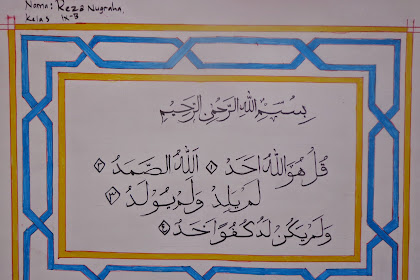 Nama : Reza Nugraha
Kelas IX-B
بِسْمِ اللهِ الرَّحْمٰنِ الرَّحِيْمِ
قُلْ هُوَ اللهُ اَحَدٌ ۝١ اَللهُ الصَّمَدُ ۝٢
لَمْ يَلِدْ وَلَمْ يُوْلَدْ ۝٣
وَلَمْ يَكُنْ لَهُ كُفُوًا اَحَدٌ ۝٤